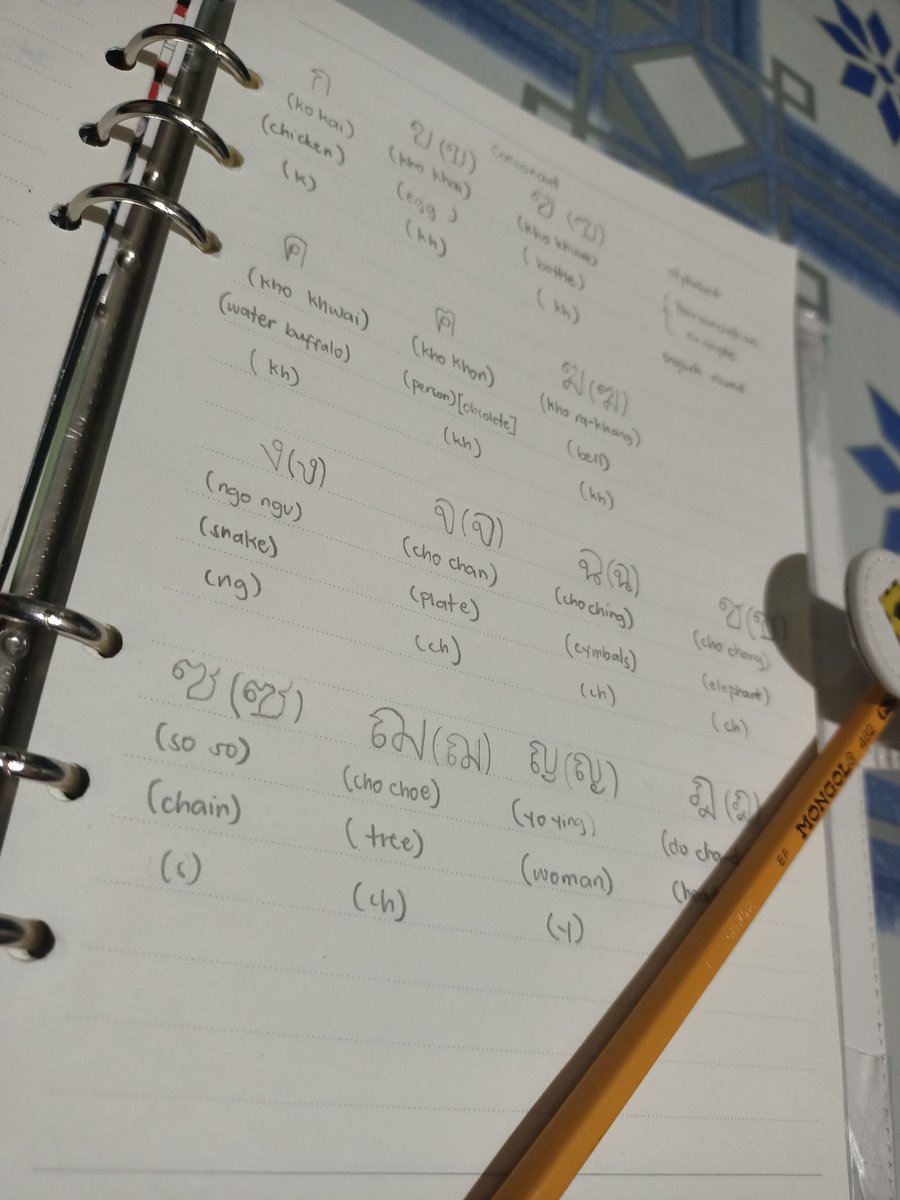 consonant
ก
(ko kai)
(chicken)
(k)
ข (ข)
(kho khai)
(egg)
(kh)
ฃ (ฃ)
(kho khuat)
(bottle)
(kh)
alphabet
example
english sound
ค
(kho khwai)
(water buffalo)
(kh)
ฅ
(kho khon)
(person) [obsolete]
(kh)
ฆ (ฆ)
(kho ra-khang)
(bell)
(kh)
ง (ง)
(ngo ngu)
(snake)
(ng)
จ (จ)
(cho chan)
(plate)
(ch)
ฉ (ฉ)
(cho ching)
(cymbals)
(ch)
ช (ช)
(cho chang)
(elephant)
(ch)
ซ (ซ)
(so so)
(chain)
(s)
ฌ (ฌ)
(cho choe)
(tree)
(ch)
ญ (ญ)
(yo ying)
(woman)
(y)
ฎ (ฎ)
(do cha-d
(head
MONGOL 482
EF